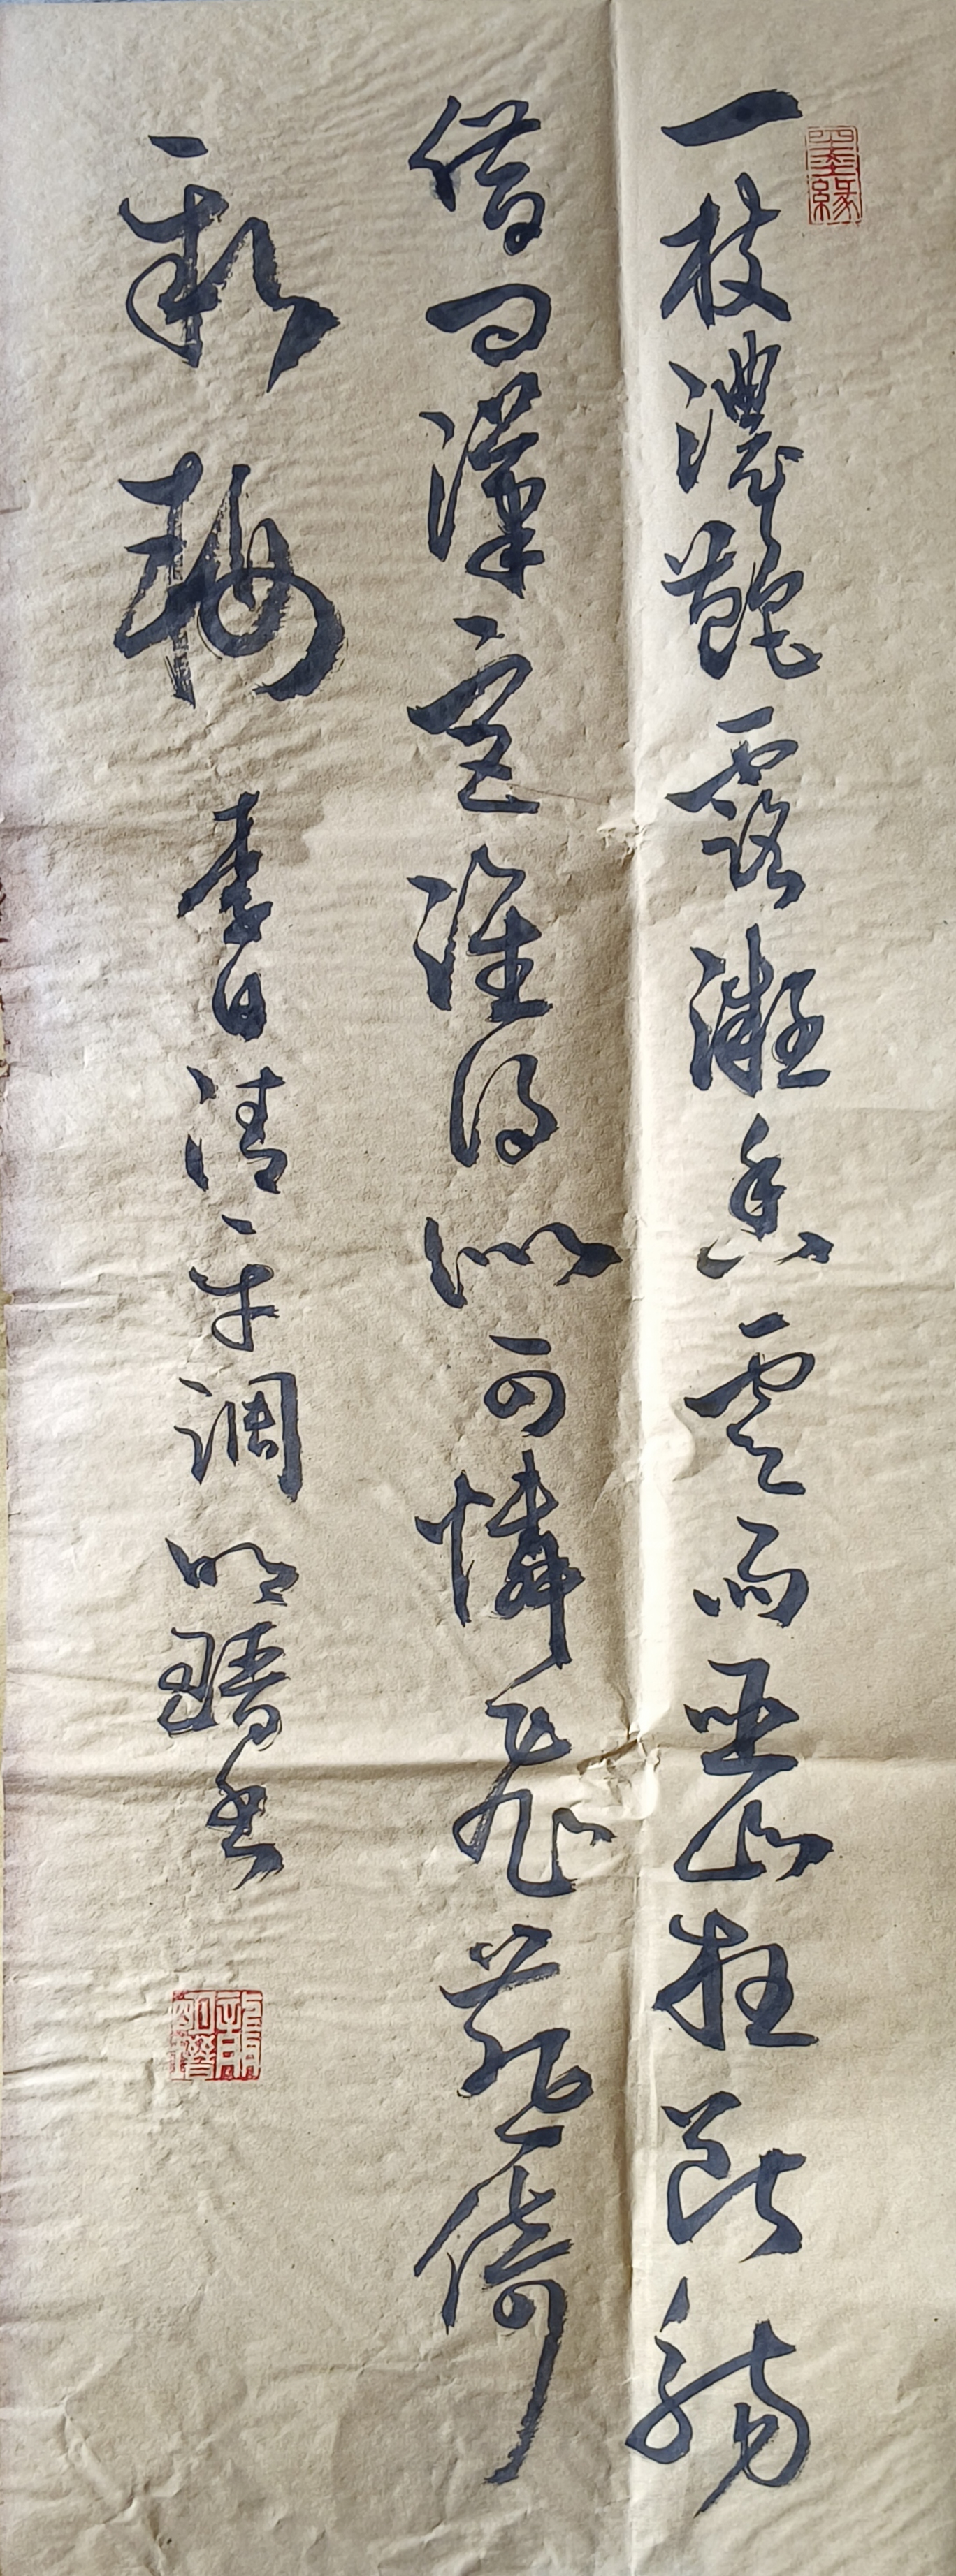 墨緣
一枝濃艷露凝香雲雨巫山枉斷腸
借問漢宮誰得似可憐飛燕倚
新妝 李白清平調 明瑨書